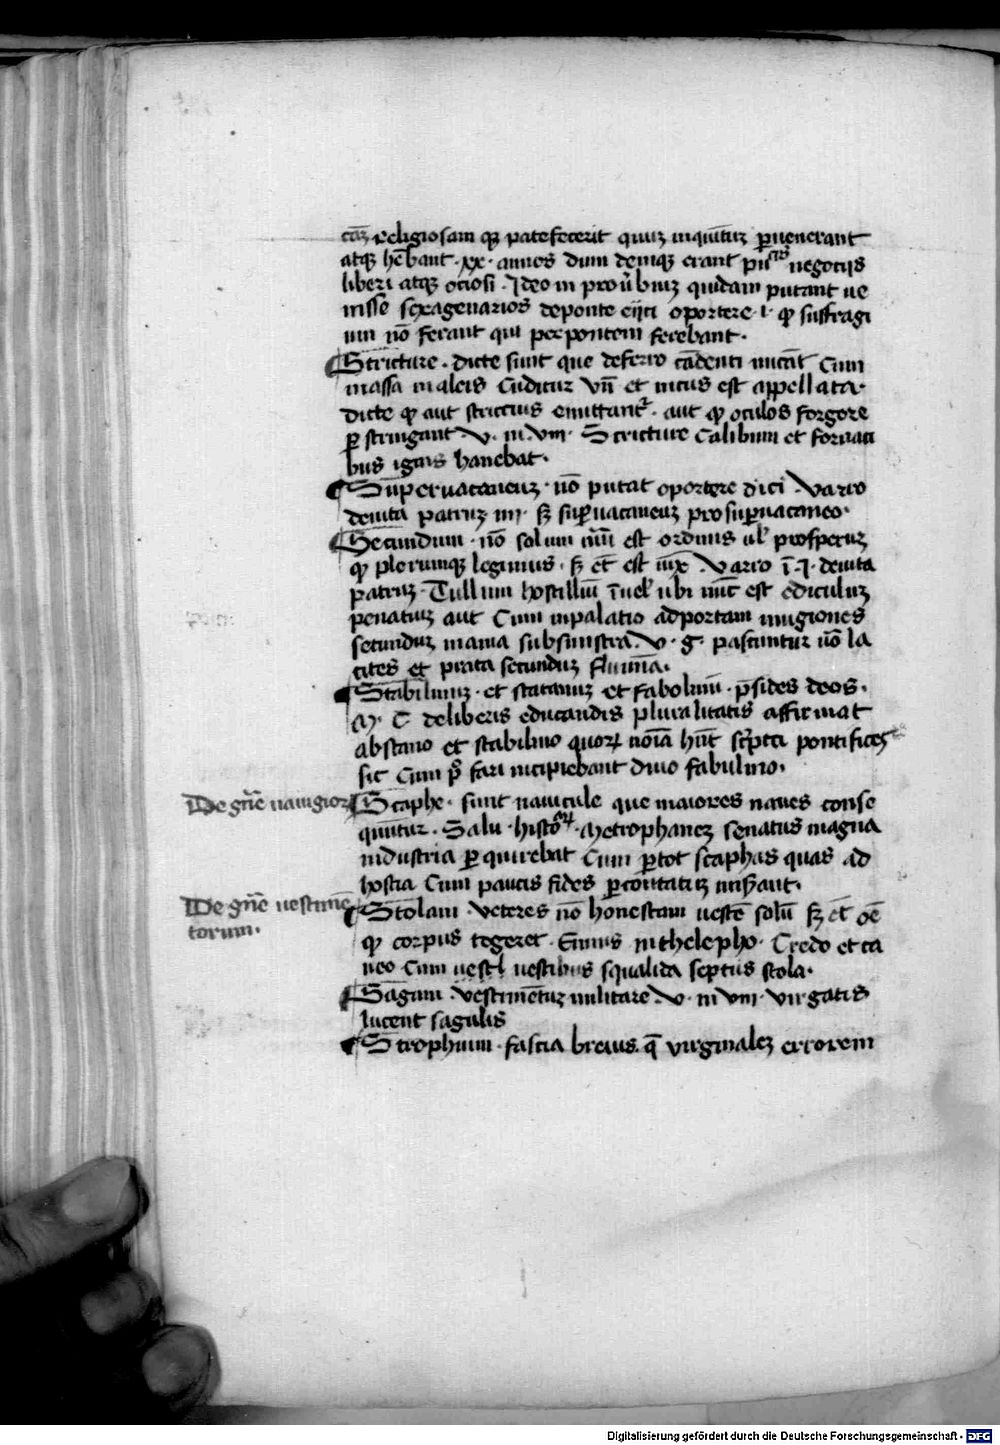 cāꝫ religiosam qꝫ patefecerit quiuꝫ inquintuꝫ ꝑuenerant
atqꝫ hēbant · xx · annos dum deniqꝫ erant negotijs
liberi atqꝫ ociosi · Ideo in prouˀbiuꝫ quidam putant ue
nisse sexagenarios deponte eijci oportere · i · qꝫ suffragi
um nō ferant qui per pontem ferebant ·
Stricture · dicte sunt que deferro cādenti micāt Cum
massa maleis Cuditur Vn̄ et nicus est appellata ·
dicte qꝫ aut strictius emittantᷣ · aut qꝫ oculos forgore
ꝑstringant · V · in · viii · Stricture Calibum et fornaci
bus ignis hanebat ·
Supervacaneuꝫ · nō putat oportere dici Varro
deuita patruꝫ iiii · sꝫ suꝑuacaneuꝫ pro suꝑuacaneo ·
Secundum · nō solum est ordinis ulˀ prosperuꝫ
qꝫ plerumqꝫ legimus · sꝫ et̄ est iux̄ Varro ī · I · deuita
patruꝫ · Tullum hostilliū ubi nūc est ediculuꝫ
penatiuꝫ aut Cum inpalatio adportam mugiones
secunduꝫ mania subsinistra · V · g · pascuntur nō la
cites et prata secunduꝫ flumīa ·
Stabilinuꝫ · et statanuꝫ et fabolinū · p̄sides deos ·
M · C deliberis educandis pluralitatis affirmat
abstano et stabilino quoꝝ noīa hūt pontifices
sic Cum p̄ fari incipiebant diuo fabulino ·
De gn̄e nauigioꝝ
Scaphe · sunt nauicule que maiores naues conse
quūtur · Salu · histo · Metrophaneꝫ senatus magna
industria ꝑquirebat Cum ꝑtot scaphas quas ad
hostia Cum paucis fides ꝑcontatuꝫ miserant ·
De gn̄e uestimē
torum ·
Stolam · Veteres nō honestam uestē solū sꝫ et̄ oē
qꝫ corpus tegeret · Ennius inthelepho · Credo et ca
neo Cum uestibus squalida septus stola ·
Sagum · Vestimētuꝫ militare · V · in viii · Virgatis
lucent sagulis
Strophium · fascia breuis · q̄ Virginaleꝫ errorem
Digitalisierung gefördert durch die Deutsche Forschungsgemeinschaft · DFG